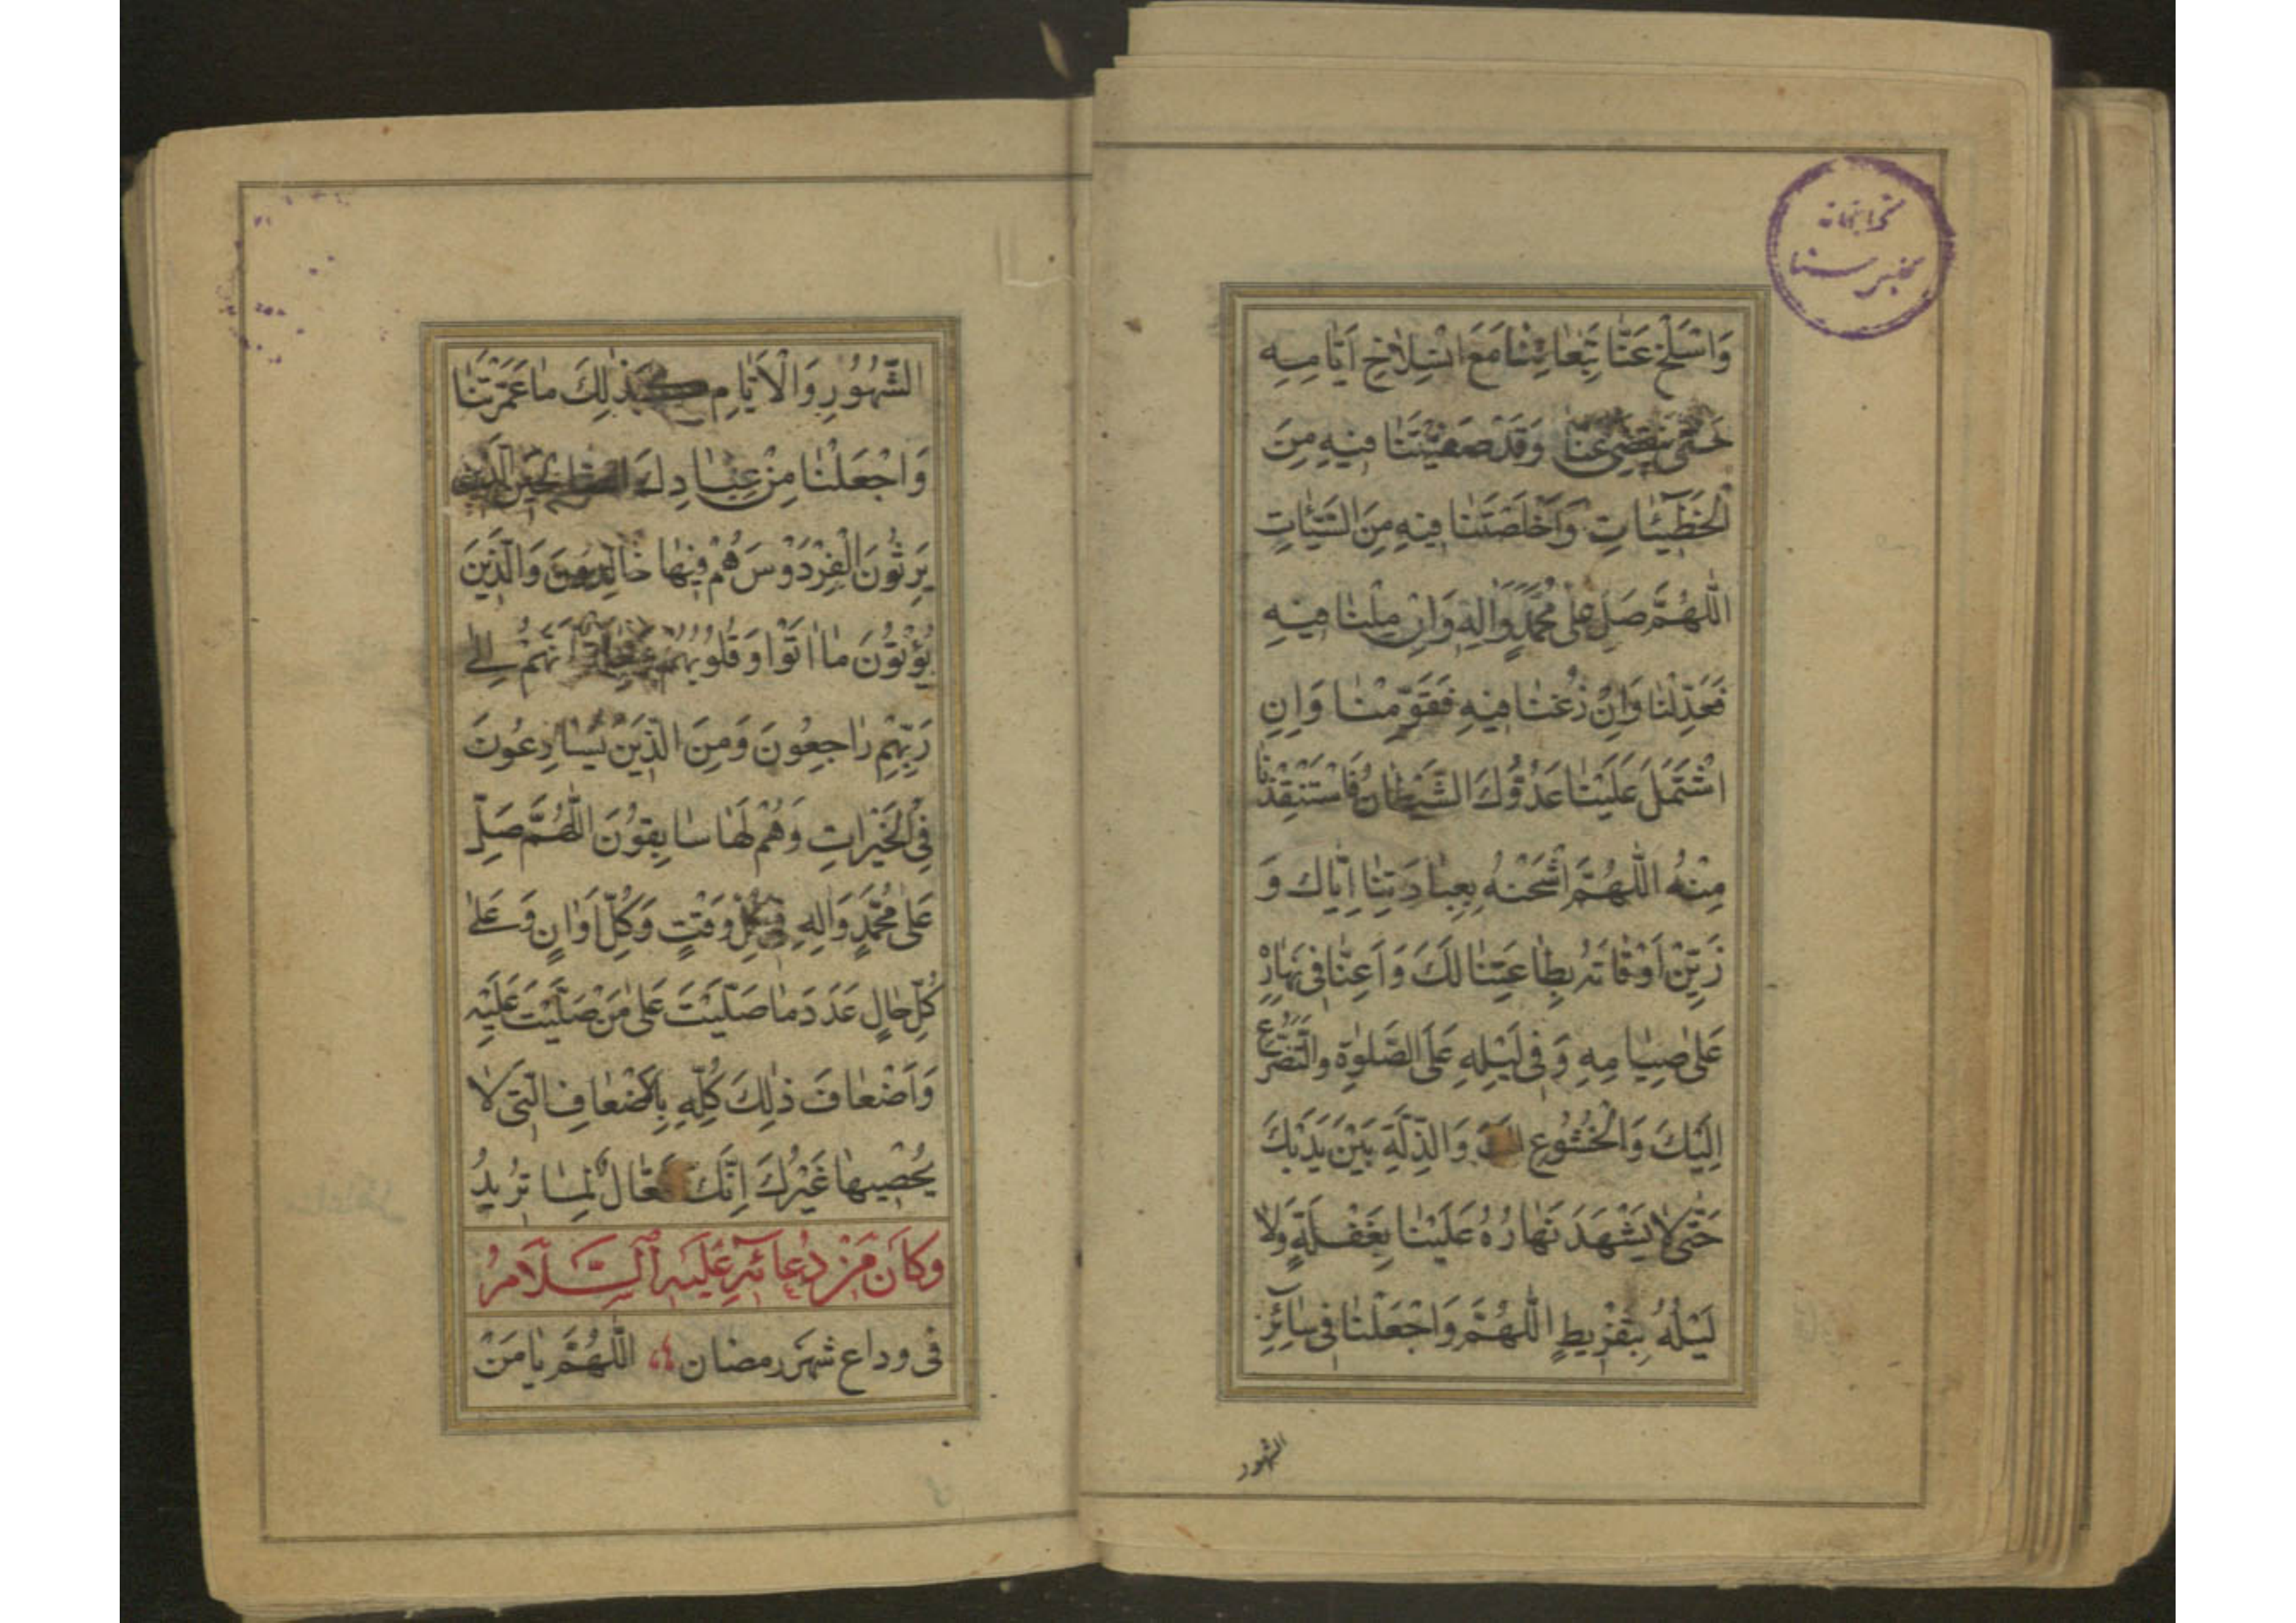 وَاسْلَخْ عَنَّا تَبِعَاتِنَا مَعَ انْسِلَاخِ اَيَّامِهِ
حَتّٰى يَنْقَضِيَ عَنَّا وَقَدْ صَفَّيْتَنَا فِيهِ مِنَ
الْخَطِيئَاتِ وَاَخْلَصْتَنَا فِيهِ مِنَ السَّيِّئَاتِ
اَللّٰهُمَّ صَلِّ عَلٰى مُحَمَّدٍ وَاٰلِهِ وَاِنْ مِلْنَا فِيهِ
فَعَدِّلْنَا وَاِنْ زُغْنَا فِيهِ فَقَوِّمْنَا وَاِنِ
اشْتَمَلَ عَلَيْنَا عَدُوُّكَ الشَّيْطَانُ فَاسْتَنْقِذْنَا
مِنْهُ اَللّٰهُمَّ اشْحَنْهُ بِعِبَادَتِنَا اِيَّاكَ وَ
زَيِّنْ اَوْقَاتَهُ بِطَاعَتِنَا لَكَ وَاَعِنَّا فِي نَهَارِهِ
عَلٰى صِيَامِهِ وَفِي لَيْلِهِ عَلَى الصَّلٰوةِ وَالتَّضَرُّعِ
اِلَيْكَ وَالْخُشُوعِ لَكَ وَالذِّلَّةِ بَيْنَ يَدَيْكَ
حَتّٰى لَا يَشْهَدَ نَهَارُهُ عَلَيْنَا بِغَفْلَةٍ وَلَا
لَيْلُهُ بِتَفْرِيطٍ اَللّٰهُمَّ وَاجْعَلْنَا فِي سَائِرِ
الشهور
الشُّهُورِ وَالْاَيَّامِ كَذٰلِكَ مَا عَمَّرْتَنَا
وَاجْعَلْنَا مِنْ عِبَادِكَ الصَّالِحِينَ الَّذِينَ
يَرِثُونَ الْفِرْدَوْسَ هُمْ فِيهَا خَالِدُونَ وَالَّذِينَ
يُؤْتُونَ مَا اٰتَوْا وَقُلُوبُهُمْ وَجِلَةٌ اَنَّهُمْ اِلٰى
رَبِّهِمْ رَاجِعُونَ وَمِنَ الَّذِينَ يُسَارِعُونَ
فِي الْخَيْرَاتِ وَهُمْ لَهَا سَابِقُونَ اَللّٰهُمَّ صَلِّ
عَلٰى مُحَمَّدٍ وَاٰلِهِ فِي كُلِّ وَقْتٍ وَكُلِّ اَوَانٍ وَعَلٰى
كُلِّ حَالٍ عَدَدَ مَا صَلَّيْتَ عَلٰى مَنْ صَلَّيْتَ عَلَيْهِ
وَاَضْعَافَ ذٰلِكَ كُلِّهِ بِالْاَضْعَافِ الَّتِي لَا
يُحْصِيهَا غَيْرُكَ اِنَّكَ فَعَّالٌ لِمَا تُرِيدُ
وَكَانَ مِنْ دُعَائِهِ عَلَيْهِ السَّلَامُ
فِي وداع شهر رمضان اَللّٰهُمَّ يَا مَنْ